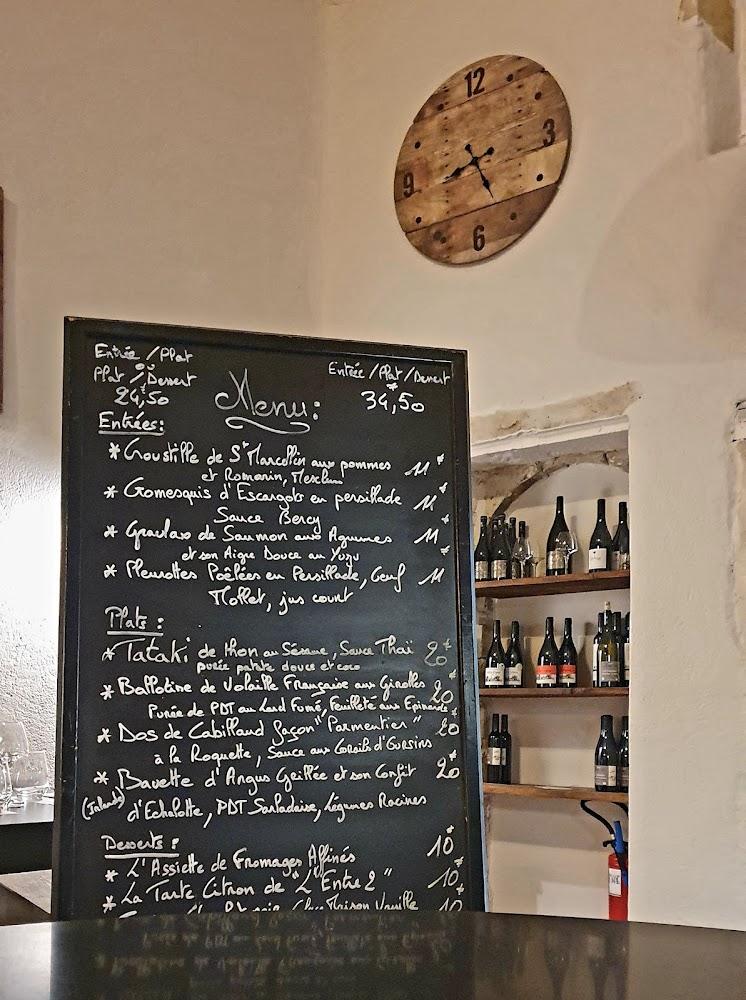 12
3
6
9
Entrée / Plat
ou
Plat / Dessert
24,50
Menu:
Entrée / Plat / Dessert
34,50
Entrées:
* Croustille de St Marcellin aux pommes 11
et Romarin, Mesclun
* Gomesquis d'Escargots en persillade 11
Sauce Bercy
* Gravlax de Saumon aux Agrumes 11
et son Aigre Douce au Yuzu
* Pleurottes Poêlées en Persillade, Oeuf 11
Mollet, jus court
Plats:
* Tataki de thon au Sésame, Sauce Thaï 20
purée patate douce et coco
* Ballotine de Volaille Française aux Girolles 20
Purée de PDT au Lard Fumé, Feuilleté aux Epinards
* Dos de Cabillaud façon "Parmentier" 20
à la Roquette, Sauce aux Corails d'Oursins
* Bavette d'Angus Grillée et son Confit 20
(Irlande) d'Echalotte, PDT Sarladaise, Légumes Racines
Desserts:
* L'Assiette de Fromages Affinés 10
* La Tarte Citron de "L'Entre 2" 10
Maison Vanille 10